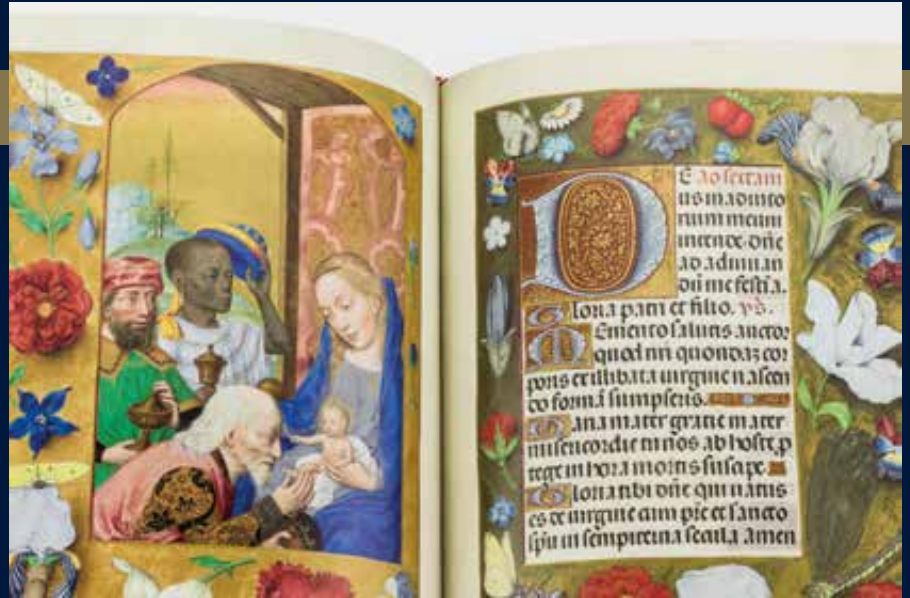 E ao sectam
us in adiuto
rium meum
intende · dñe
ad adiuuan
dū me festīa.
Gloria patri et filio. ps.
Memento salutis auctor
quod nr̄i quondaz cor
poris ex illibata uirgine nascen
do formā sumpseris.
Maria mater gratie mater
misericordie tu nos ab hoste p
tege in hora mortis suscipe
Gloria tibi dñe qui natus
es de uirgine cum pr̄e et sancto
spū in sempiterna secula amen